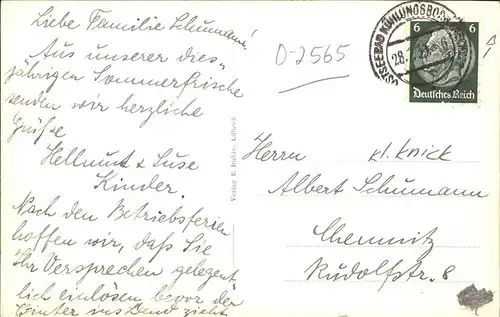 Liebe Familie Schumann!
Aus unserer dies-
jährigen Sommerfrische
senden wir herzliche
Grüße
Hellmut & Suse
Kinder.
Nach den Betriebsferien
hoffen wir, daß Sie
Ihr Versprechen gelegent-
lich einlösen, bevor der
Winter ins Land zieht
D-2565
Verlag E. Rubin, Lübeck
OSTSEEBAD KÜHLUNGSBORN
28.
6 6
Deutsches Reich
kl. Knick
Herrn
Albert Schumann
Chemnitz
Rudolfstr. 8